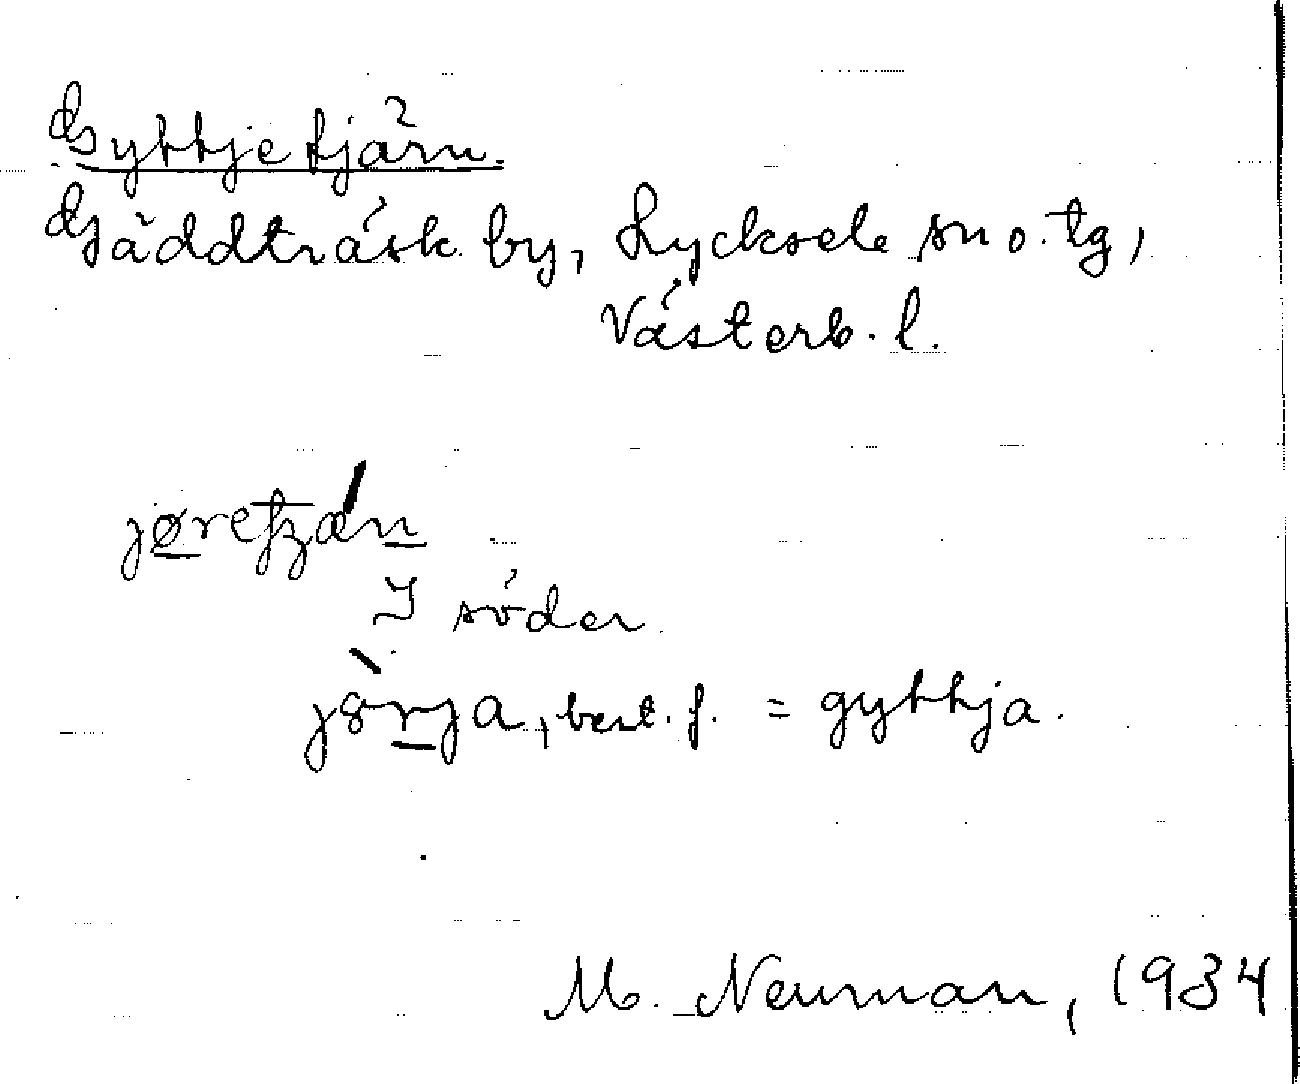 Gyttjetjärn.
Gäddträsk by, Lycksele sn o. tg,
Västerb. l.
I söder
jörja, best. f. = gyttja.
M. Neuman, 1934